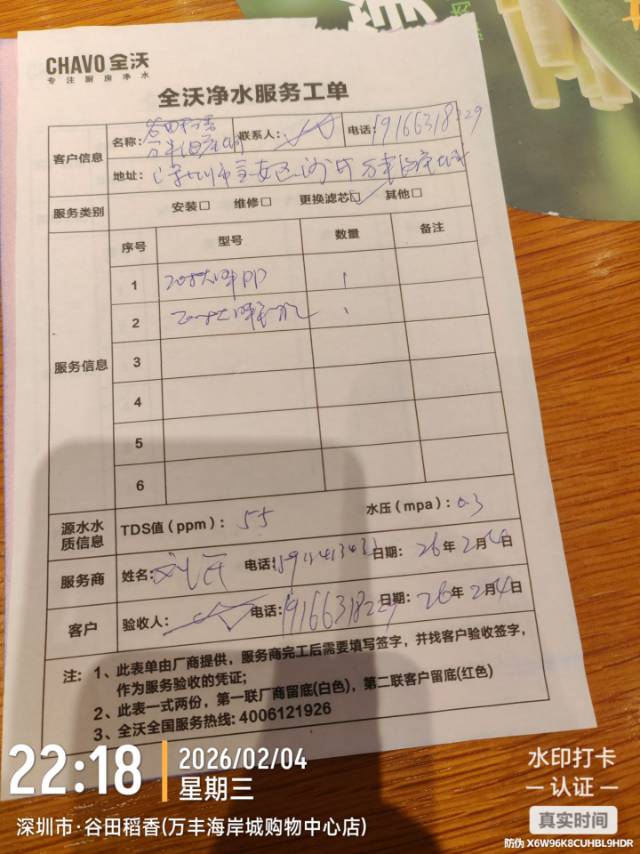 CHAVO 全沃
专注厨房净水
全沃净水服务工单
客户信息
名称: 谷田稻香 万丰海岸城 联系人: 电话: 19166318229
地址: 深圳市宝安区沙井万丰海岸城
服务类别 安装□ 维修□ 更换滤芯☑ 其他□
服务信息
序号 型号 数量 备注
1 PP 1
2 1
3
4
5
6
源水水质信息
TDS值(ppm): 55 水压(mpa): 0.3
服务商 姓名: 电话: 日期: 26年2月4日
客户 验收人: 电话: 19166318229 日期: 26年2月4日
注: 1、此表单由厂商提供,服务商完工后需要填写签字,并找客户验收签字,
作为服务验收的凭证;
2、此表一式两份,第一联厂商留底(白色),第二联客户留底(红色)
3、全沃全国服务热线: 4006121926
22:18
2026/02/04
星期三
深圳市·谷田稻香(万丰海岸城购物中心店)
水印打卡
认证
真实时间
防伪 X6W96K8CUHBL9HDR